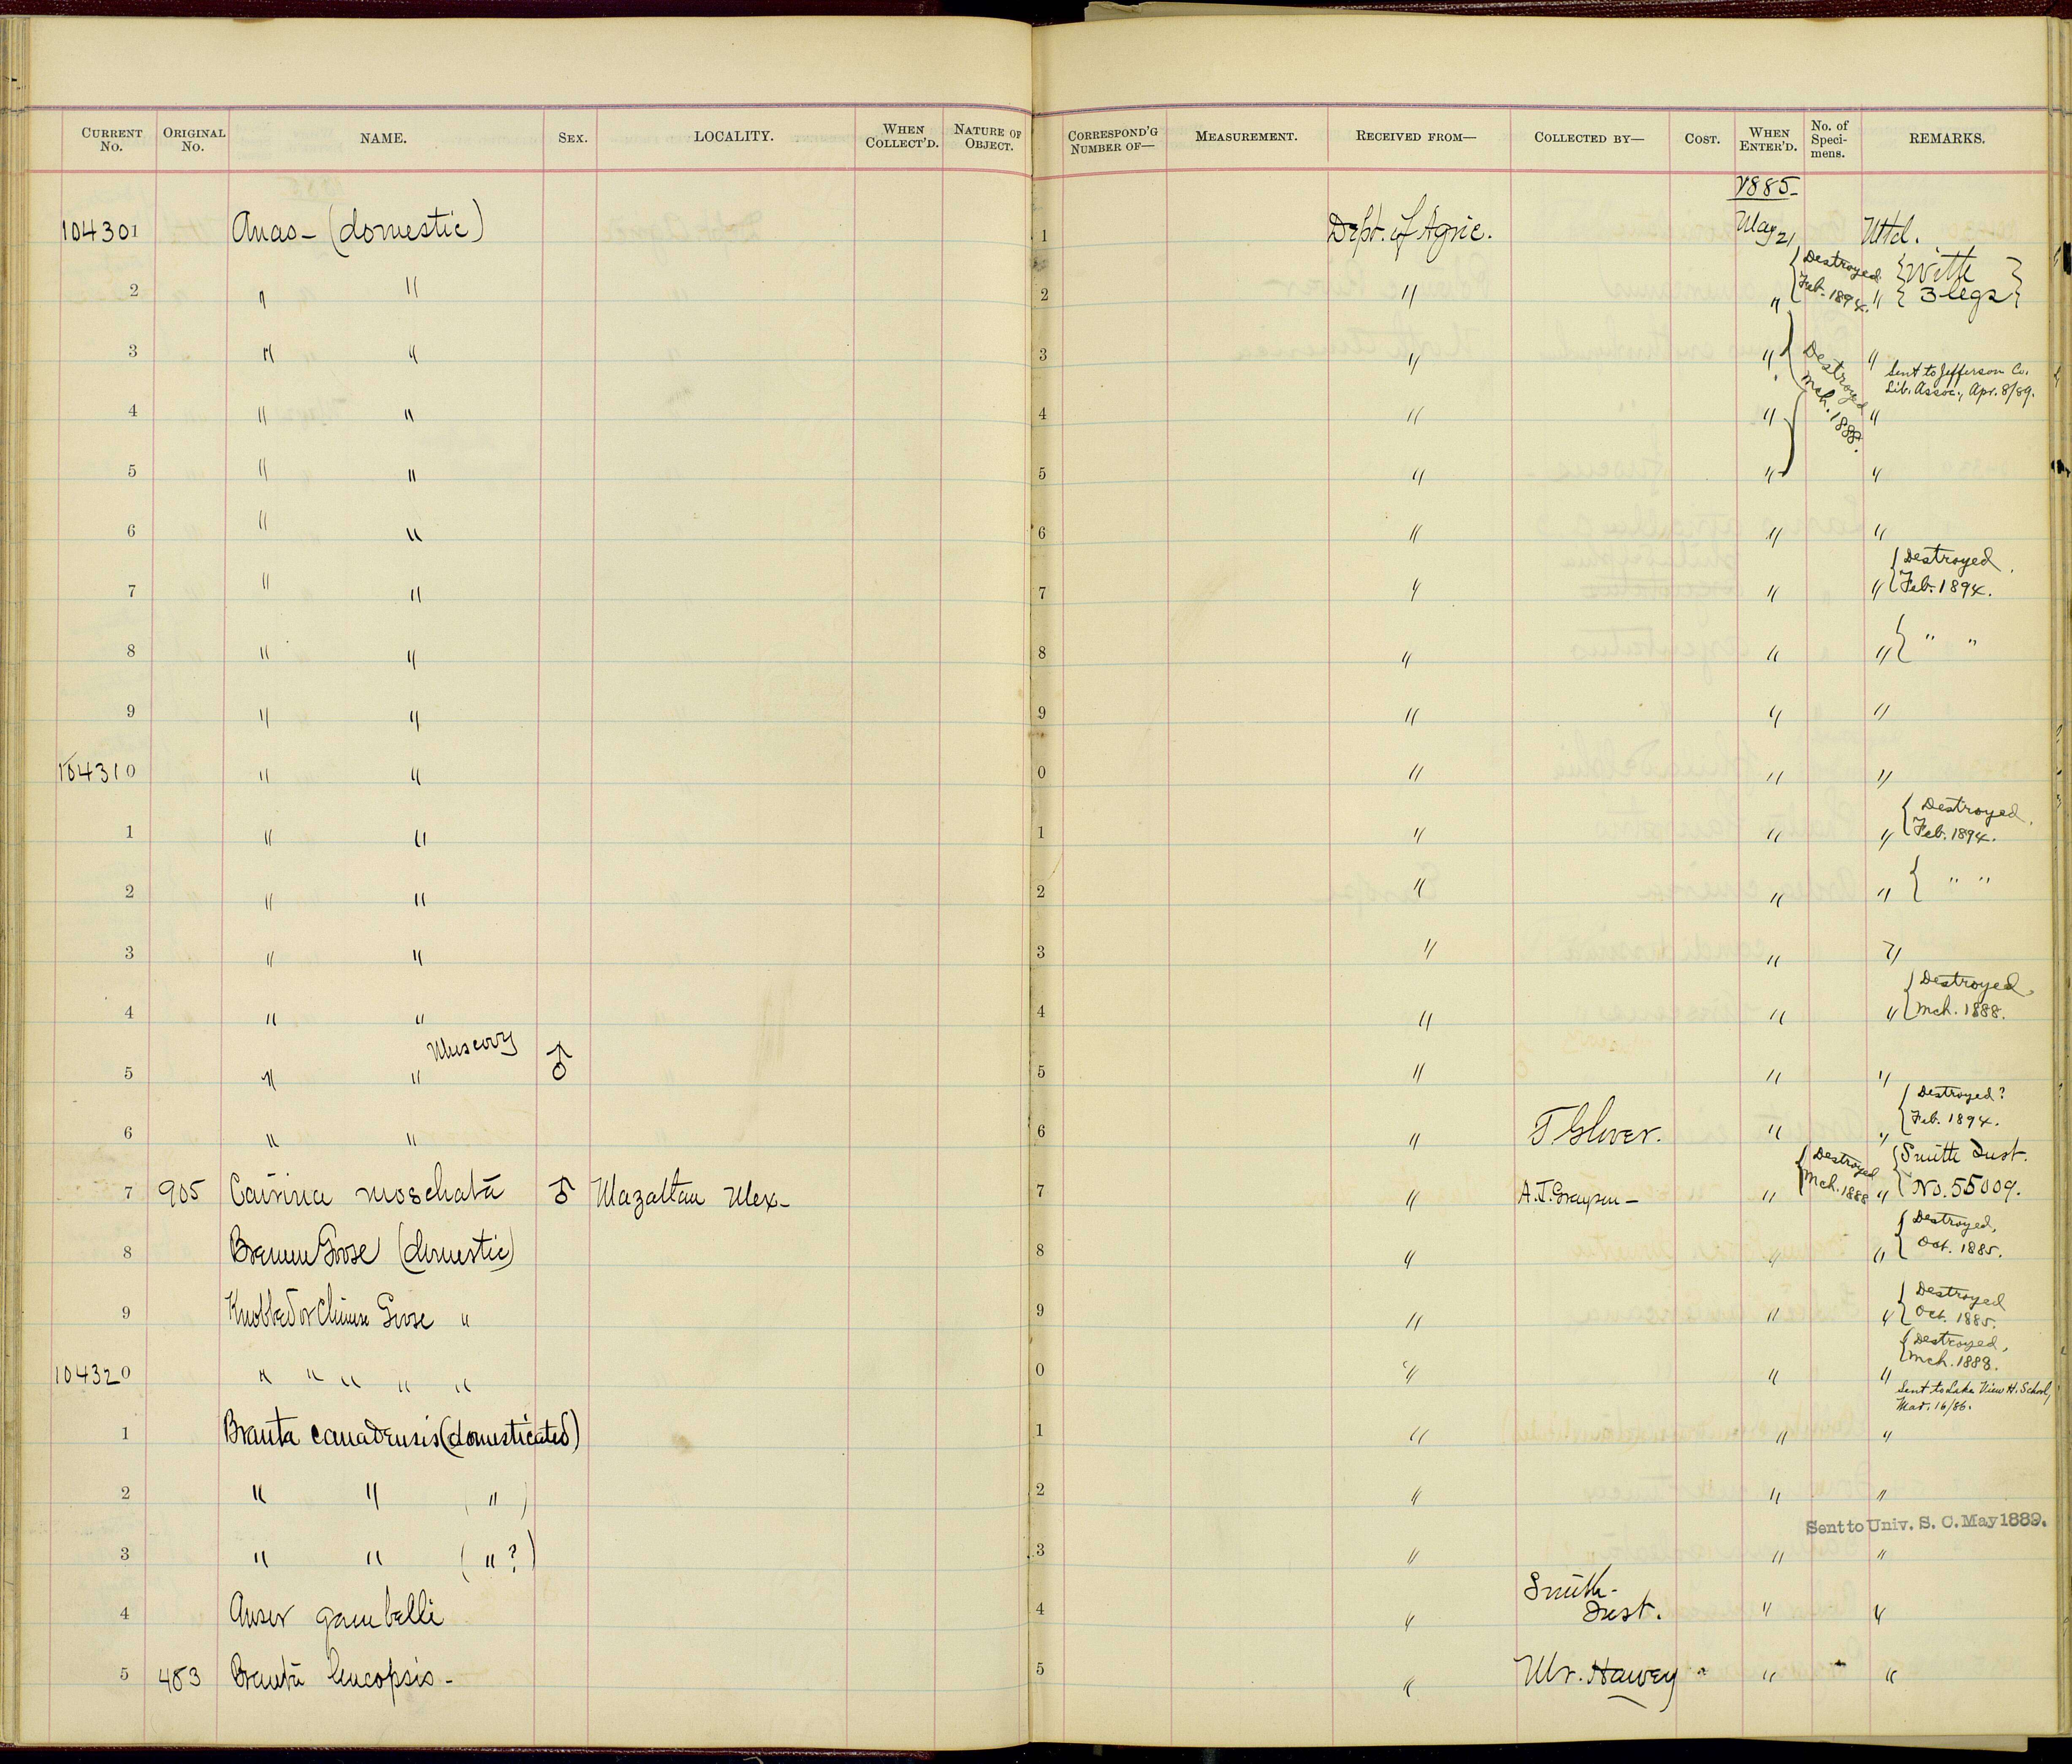 CURRENT No. ORIGINAL No. NAME. SEX. LOCALITY. WHEN COLLECT'D. NATURE OF OBJECT. CORRESPOND'G NUMBER OF— MEASUREMENT. RECEIVED FROM— COLLECTED BY— COST. WHEN ENTER'D. No. of Specimens. REMARKS.
1885-
104301 Anas - (domestic) 1 Dept. of Agric. May 21 Mtd.
2 " " 2 " " { Destroyed Feb. 1894. " { With 3 legs }
3 " " 3 " " " Sent to Jefferson Co. Lib. Assoc., Apr. 8/89.
Destroyed Mch. 1888.
4 " " 4 " " "
5 " " 5 " " "
6 " " 6 " " "
7 " " 7 " " " { Destroyed Feb. 1894.
8 " " 8 " " " { " "
9 " " 9 " " "
104310 " " 0 " " "
1 " " 1 " " " { Destroyed. Feb. 1894.
2 " " 2 " " " { " "
3 " " 3 " " "
4 " " 4 " " " { Destroyed Mch. 1888.
Muscovy
5 " " ♂ 5 " " "
6 " " 6 " T Glover. " " { Destroyed? Feb. 1894.
7 905 Cairina moschata ♂ Mazaltan Mex- 7 " A. J. Grayson - " { Destroyed Mch. 1888 " { Smith Inst. No. 55009.
8 Bremen Goose (domestic) 8 " " " { Destroyed, Oct. 1885.
9 Knobbed or Chinese Goose " 9 " " " { Destroyed Oct. 1885.
104320 " " " " " 0 " " " { Destroyed, Mch. 1888.
Sent to Lake View H. School, Mar. 16/86.
1 Branta canadensis (domesticated) 1 " " "
2 " " ( " ) 2 " " "
Sent to Univ. S. C. May 1889.
3 " " ( " ? ) 3 " " "
4 Anser gambelli 4 " Smith. Inst. " "
5 483 Branta leucopsis - 5 " Mr. " "